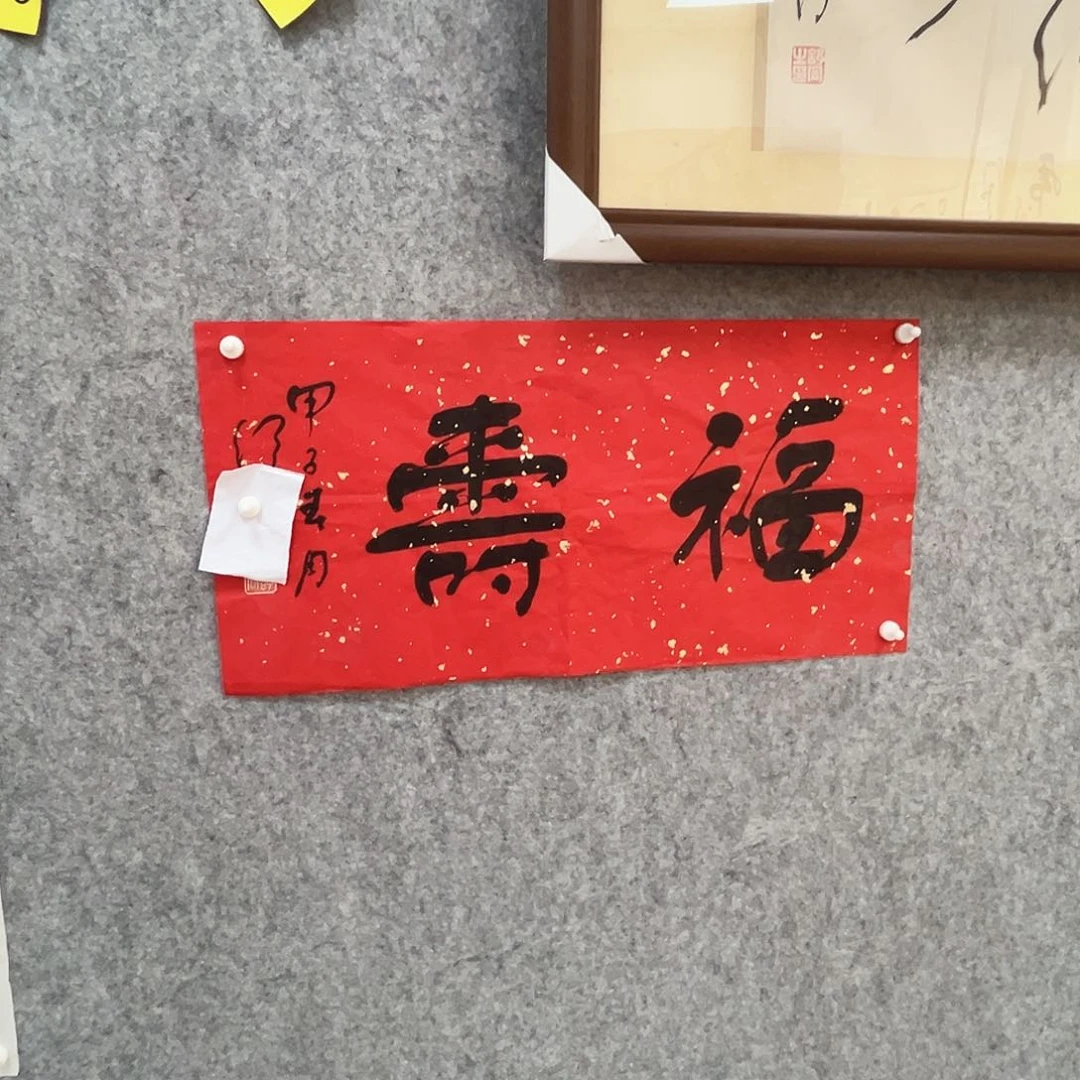 福壽
甲子春月